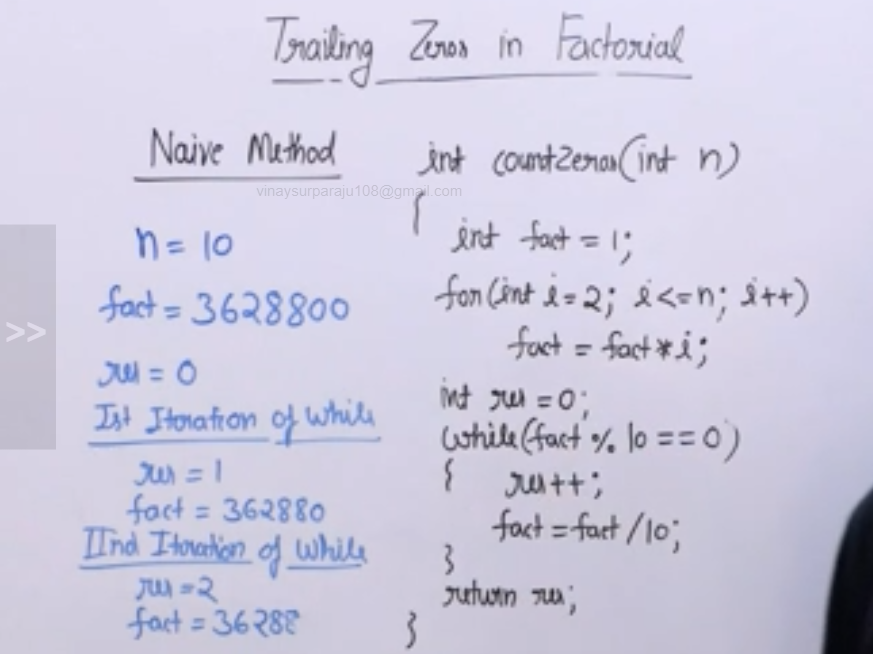 Trailing Zeros in Factorial
Naive Method
vinaysurparaju108@gmail.com
n = 10
fact = 3628800
res = 0
Ist Iteration of while
res = 1
fact = 362880
IInd Iteration of while
res = 2
fact = 36288
int countZeros(int n)
{
int fact = 1;
for(int i=2; i<=n; i++)
fact = fact*i;
int res = 0;
while(fact % 10 == 0)
{ res++;
fact = fact/10;
}
return res;
}
>>